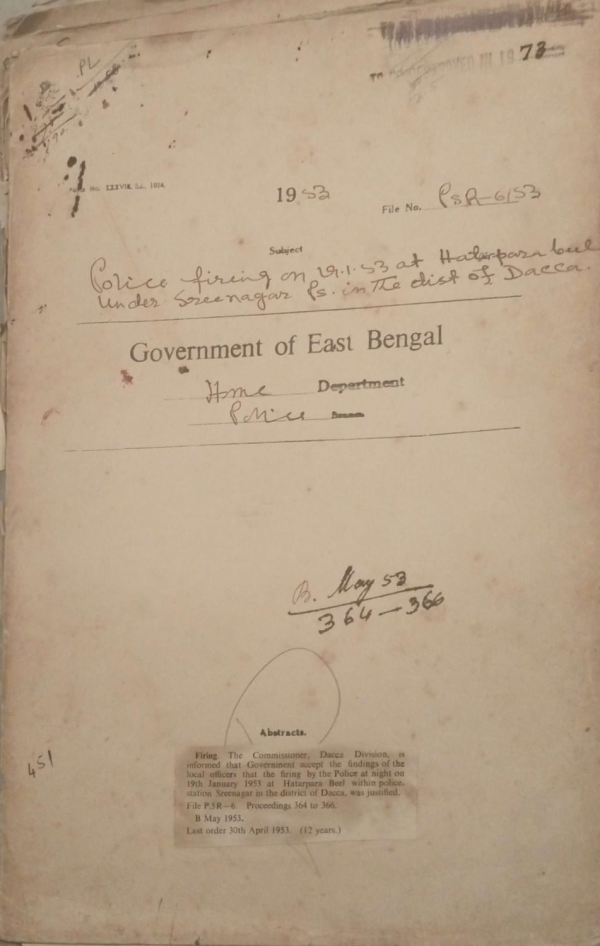 PL
TO BE DESTROYED IN 1973
No. XXXVIII
1953
File No. P5R-6/53
Subject
Police firing on 19.1.53 at Hatarpara beel
under Sreenagar Ps. in the dist of Dacca.
Government of East Bengal
Home Department
Police Branch
B. May 53
364-366
451
Abstracts.
Firing. The Commissioner, Dacca Division, is
informed that Government accept the findings of the
local officers that the firing by the Police at night on
19th January 1953 at Hatarpara Beel within police-
station Sreenagar in the district of Dacca, was justified.
File P.5R—6. Proceedings 364 to 366.
B May 1953.
Last order 30th April 1953. (12 years.)